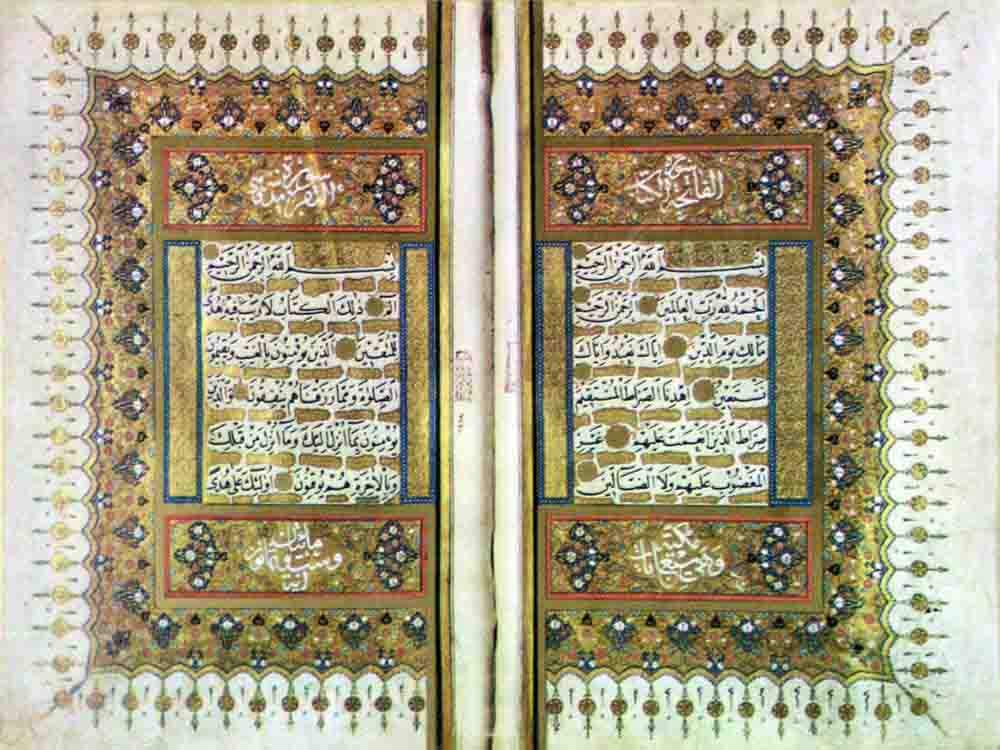 سورة الفاتحة
بِسْمِ اللهِ الرَّحْمٰنِ الرَّحِيمِ
اَلْحَمْدُ لِلّٰهِ رَبِّ الْعَالَمِينَ الرَّحْمٰنِ الرَّحِيمِ
مَالِكِ يَوْمِ الدِّينِ اِيَّاكَ نَعْبُدُ وَاِيَّاكَ
نَسْتَعِينُ اِهْدِنَا الصِّرَاطَ الْمُسْتَقِيمَ
صِرَاطَ الَّذِينَ اَنْعَمْتَ عَلَيْهِمْ غَيْرِ
الْمَغْضُوبِ عَلَيْهِمْ وَلَا الضَّالِّينَ
سورة البقرة مدنية
بِسْمِ اللهِ الرَّحْمٰنِ الرَّحِيمِ
الٓمٓ ذٰلِكَ الْكِتَابُ لَا رَيْبَ فِيهِ هُدًى
لِلْمُتَّقِينَ الَّذِينَ يُؤْمِنُونَ بِالْغَيْبِ وَيُقِيمُونَ
الصَّلٰوةَ وَمِمَّا رَزَقْنَاهُمْ يُنْفِقُونَ وَالَّذِينَ
يُؤْمِنُونَ بِمَا اُنْزِلَ اِلَيْكَ وَمَا اُنْزِلَ مِنْ قَبْلِكَ
وَبِالْاٰخِرَةِ هُمْ يُوقِنُونَ اُولٰئِكَ عَلٰى هُدًى